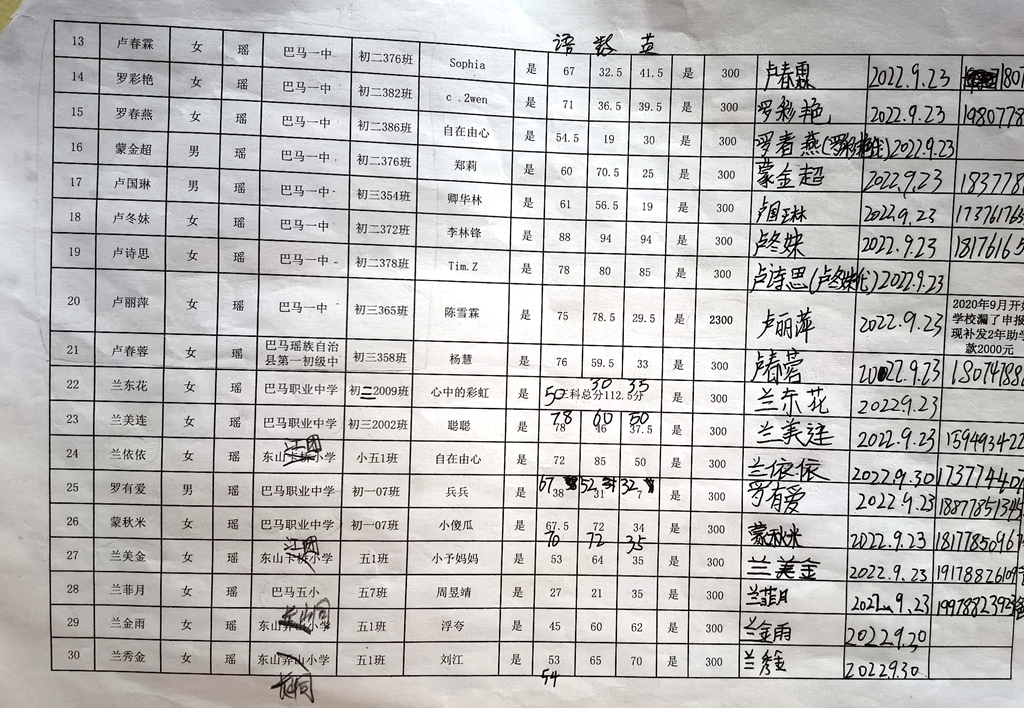 语 数 英
13 卢春霖 女 瑶 巴马一中 初二376班 Sophia 是 67 32.5 41.5 是 300 卢春霖 2022.9.23
14 罗彩艳 女 瑶 巴马一中 初二382班 c .2wen 是 71 36.5 39.5 是 300 罗彩艳 2022.9.23 1980778
15 罗春燕 女 瑶 巴马一中 初二386班 自在由心 是 54.5 19 30 是 300 罗春燕 2022.9.23
16 蒙金超 男 瑶 巴马一中 初二376班 郑莉 是 60 70.5 25 是 300 蒙金超 2022.9.23 1837778
17 卢国琳 男 瑶 巴马一中 初三354班 卿华林 是 61 56.5 19 是 300 卢国琳 2022.9.23 17376176
18 卢冬妹 女 瑶 巴马一中 初二372班 李林锋 是 88 94 94 是 300 卢冬妹 2022.9.23 1817616
19 卢诗思 女 瑶 巴马一中 初二378班 Tim.Z 是 78 80 85 是 300 卢诗思(卢冬妹代) 2022.9.23
20 卢丽萍 女 瑶 巴马一中 初三365班 陈雪霖 是 75 78.5 29.5 是 2300 卢丽萍 2022.9.23 2020年9月开
学校漏了申报
现补发2年助学
款2000元
21 卢春蓉 女 瑶 巴马瑶族自治
县第一初级中 初三358班 杨慧 是 76 59.5 33 是 300 卢春蓉 2022.9.23 1807478
22 兰东花 女 瑶 巴马职业中学 初二2009班 心中的彩虹 是 三科总分112.5分 50 30 35 是 300 兰东花 2022.9.23
23 兰美连 女 瑶 巴马职业中学 初三2002班 聪聪 是 78 46 37.5 78 60 50 是 300 兰美连 2022.9.23 159493422
24 兰依依 女 瑶 东山卡桥小学 江团 小五1班 自在由心 是 72 85 50 是 300 兰依依 2022.9.30 1737740
25 罗有爱 男 瑶 巴马职业中学 初一07班 兵兵 是 38 31 7 67 52 32 是 300 罗有爱 2022.9.23 1887785134
26 蒙秋米 女 瑶 巴马职业中学 初一07班 小傻瓜 是 67.5 72 34 是 300 蒙秋米 2022.9.23 181778509
27 兰美金 女 瑶 东山卡桥小学 江团 五1班 小予妈妈 是 53 64 35 70 72 35 是 300 兰美金 2022.9.23 191788261
28 兰菲月 女 瑶 巴马五小 五7班 周昱靖 是 27 21 35 是 300 兰菲月 9.23 199788239
29 兰金雨 女 瑶 东山弄山小学 五1班 浮夸 是 45 60 62 是 300 兰金雨 2022.9.30
30 兰秀金 女 瑶 东山弄山小学 五1班 刘江 是 53 65 70 是 300 兰秀金 2022.9.30
54